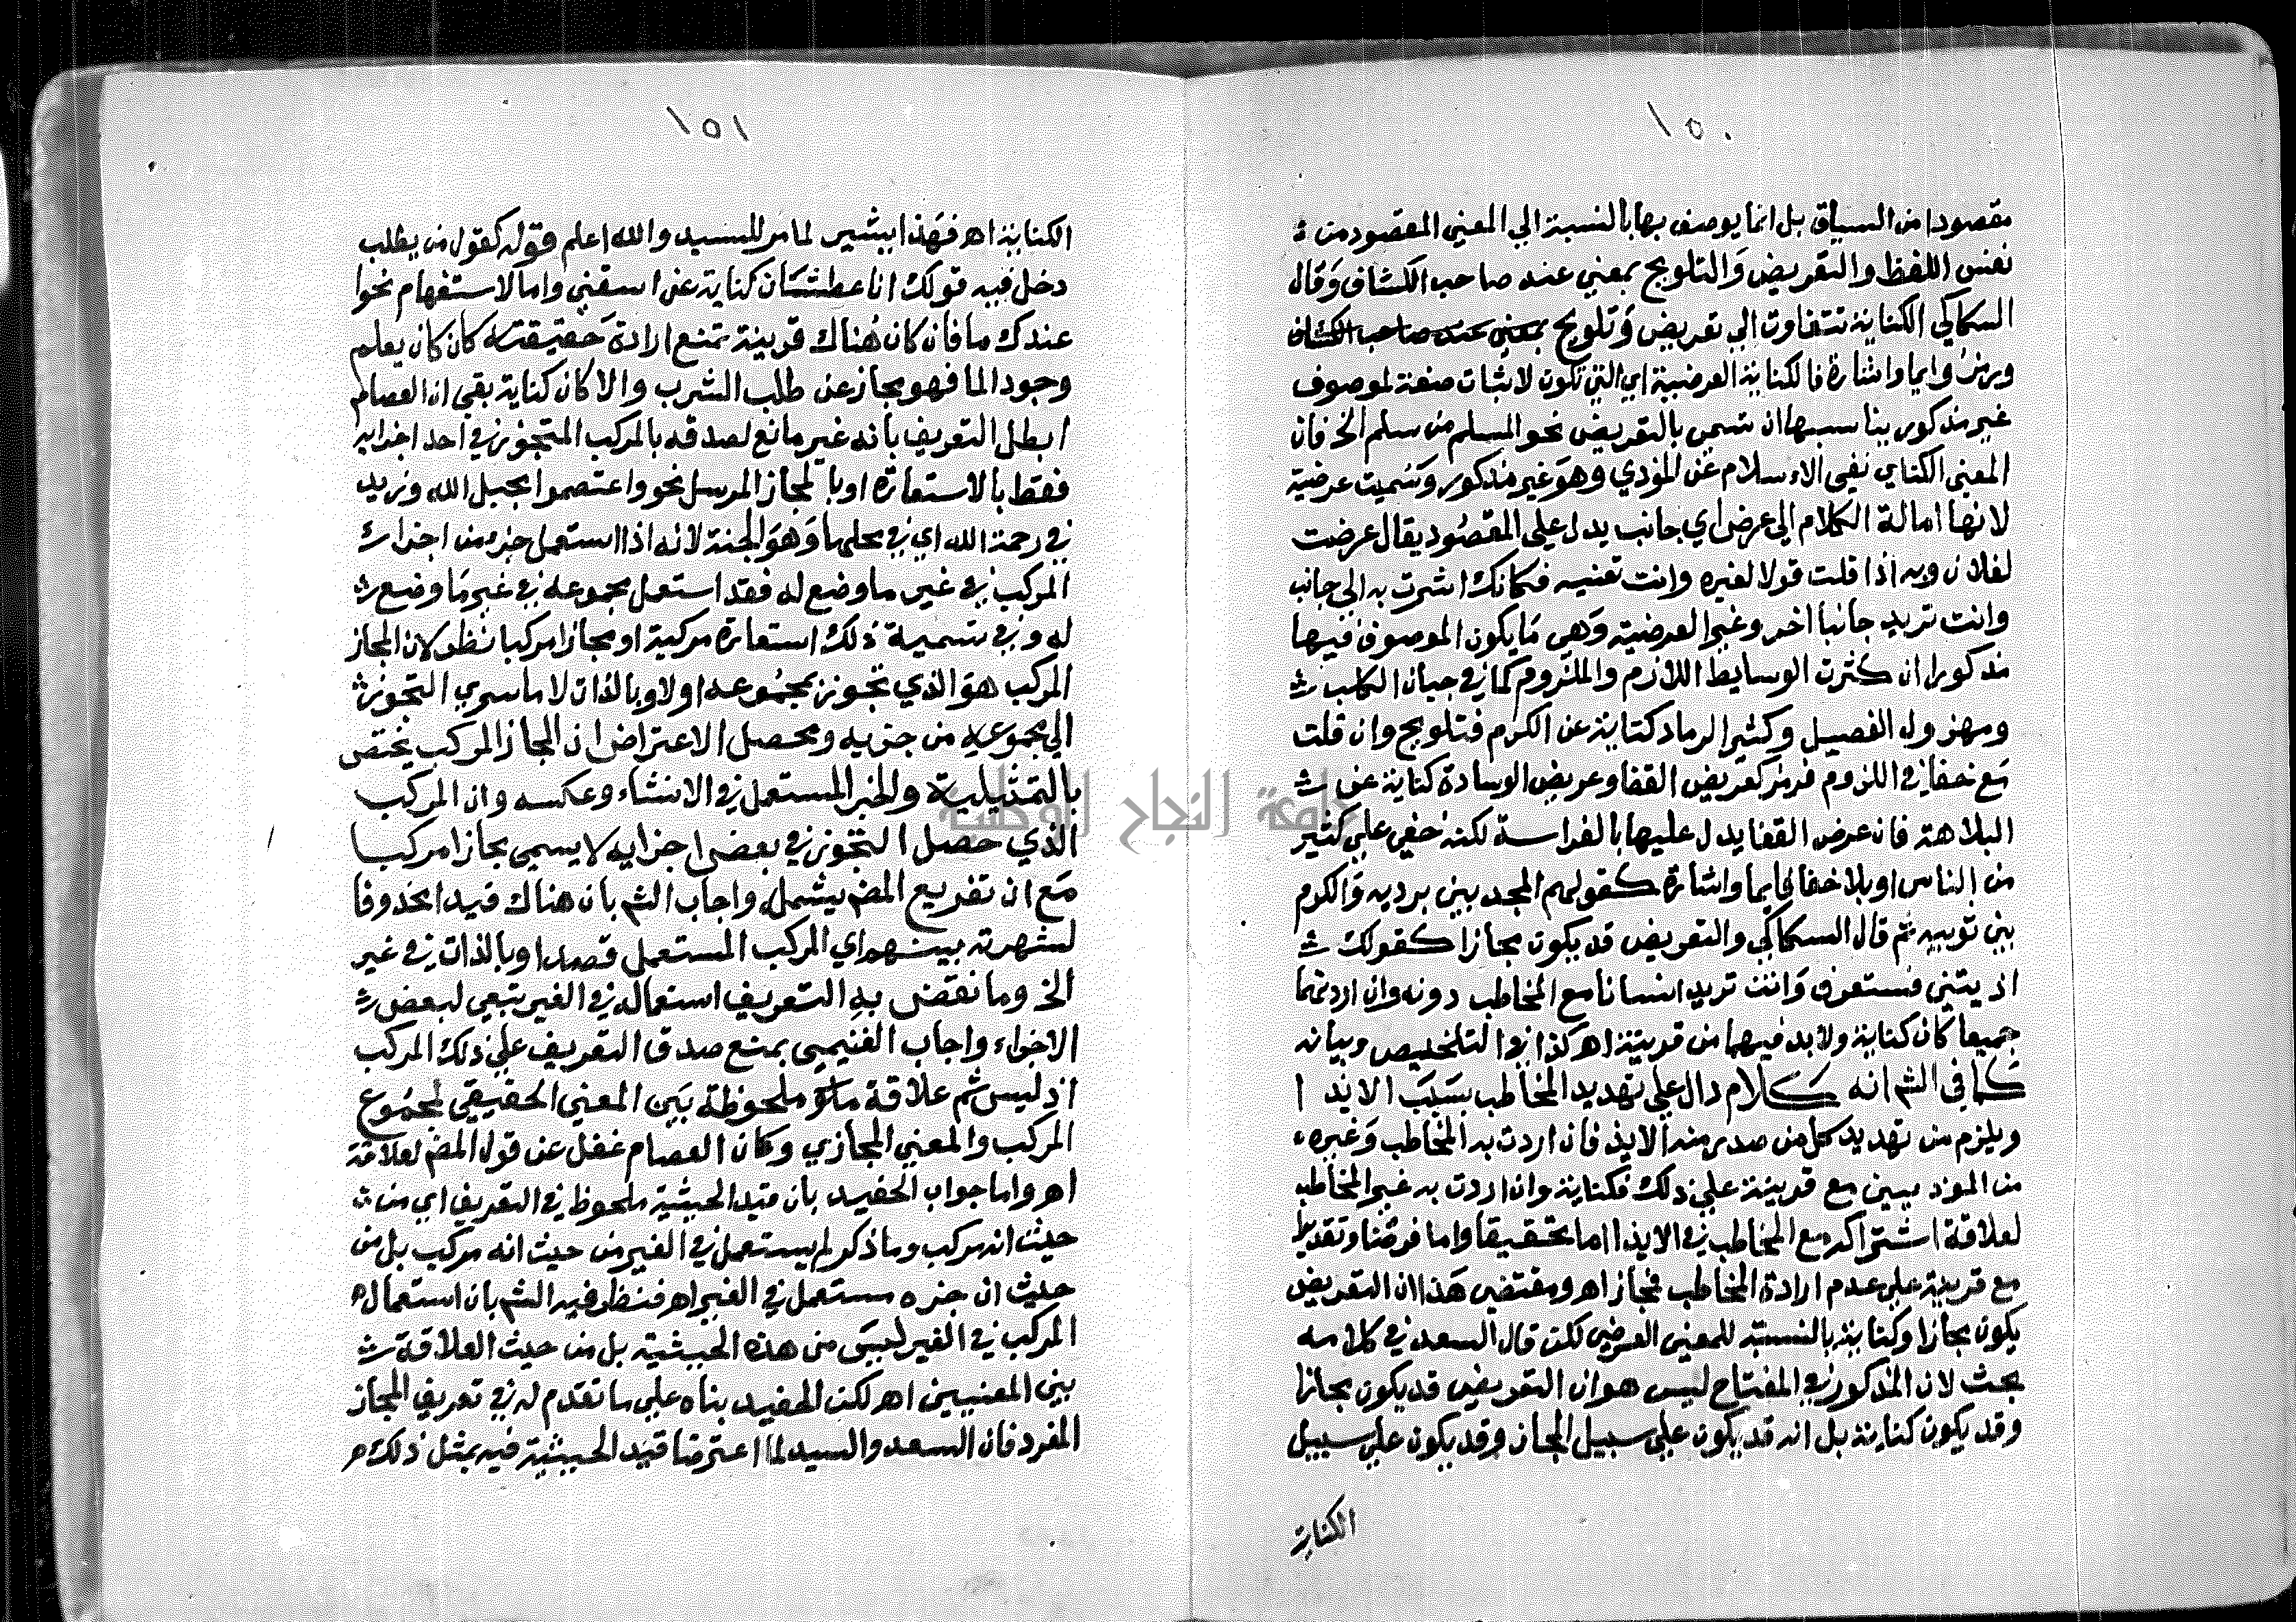 ١٥٠
مقصودا من السياق بل انما يوصف بها بالنسبة الي المعني المقصود من
نفس اللفظ والتعريض والتلويح بمعني عند صاحب الكشاف وقال
السكاكي الكناية تتفاوت الي تعريض وتلويح بمعني عند صاحب الكشاف
ورمز وايما واشارة فالكناية العرضية اي التي تكون لاثبات صفة لموصوف
غير مذكور يناسبها ان تسمي بالتعريض نحو المسلم من سلم الخ فان
المعني الكناي نفي الاسلام عن المؤذي وهو غير مذكور وسميت عرضية
لانها امالة الكلام الي عرض اي جانب يدل علي المقصود يقال عرضت
لفلان وبه اذا قلت قولا لغيره وانت تعنيه فكانك اشرت به الي جانب
وانت تريد جانبا اخر وغير العرضية وهي ما يكون الموصوف فيها
مذكورا ان كثرت الوسايط اللازم والملزوم كما في جبان الكلب
ومهزول الفصيل وكثير الرماد كناية عن الكرم فتلويح وان قلت
مع خفا في اللزوم فرمز كعريض القفا وعريض الوسادة كناية عن
البلاهة فان عرض القفا يدل عليها بالفراسة لكنه خفي علي كثير
من الناس او بلا خفا فايما واشارة كقولهم المجد بين برديه والكرم
بين ثوبيه ثم قال السكاكي والتعريض قد يكون مجازا كقولك
اذيتني فستعرف وانت تريد انسانا مع المخاطب دونه وان اردتهما
جميعا كان كناية ولابد فيهما من قرينة اهـ كذا في التلخيص وبيانه
كما في الشم انه كلام دال علي تهديد المخاطب بسبب الايذا
ويلزم من تهديد كل من صدر منه الايذ فان اردت به المخاطب وغيره
من الموذيين مع قرينة علي ذلك فكناية وان اردت به غير المخاطب
لعلاقة اشتراكه مع المخاطب في الايذا اما تحقيقا واما فرضا وتقديرا
مع قرينة علي عدم ارادة المخاطب فمجاز اهـ ومقتضي هذا ان التعريض
يكون مجازا وكناية بالنسبة للمعني العرضي لكن قال السعد في كلامه
بحث لان المذكور في المفتاح ليس هو ان التعريض قد يكون مجازا
وقد يكون كناية بل انه قد يكون علي سبيل المجاز وقد يكون علي سبيل
الكناية
١٥١
الكناية اهـ فهذا يشير لما مر للسيد والله اعلم قوله كقول من يطلب
دخل فيه قولك انا عطشان كناية عن اسقني واما الاستفهام نحو ا
عندك ما فان كان هناك قرينة تمنع ارادة حقيقته كان كان يعلم
وجود الما فهو مجاز عن طلب الشرب والا كان كناية بقي ان العصام
ابطل التعريف بانه غير مانع لصدقه بالمركب المتجوز في احد اجزايه
فقط بالاستعارة او بالمجاز المرسل نحو واعتصموا بحبل الله وزيد
في رحمة الله اي في محلها وهو الجنة لانه اذا استعمل جزء من اجزا
المركب في غير ما وضع له فقد استعمل مجموعه في غير ما وضع
له وفي تسمية ذلك استعارة مركبة او مجازا مركبا نظر لان المجاز
المركب هو الذي تجوز بمجموعه اولا وبالذات لا ما سري التجوز
الي مجموعه من جزيه ومحصل الاعتراض ان المجاز المركب يختص
بالتمثيلية والخبر المستعمل في الانشاء وعكسه وان المركب
الذي حصل التجوز في بعض اجزايه لا يسمي مجازا مركبا
مع ان تفريع المص يشمله واجاب الشم بان هناك قيدا محذوفا
لشهرته بينهم اي المركب المستعمل قصدا وبالذات في غير
الخ وما نقض به التعريف استعماله في الغير تبعي لبعض
الاجزاء واجاب الغنيمي بمنع صدق التعريف علي ذلك المركب
اذ ليس ثم علاقة ملحوظة بين المعني الحقيقي لمجموع
المركب والمعني المجازي وكان العصام غفل عن قول المص لعلاقة
اهـ واما جواب الحفيد بان قيد الحيثية ملحوظ في التعريف اي من
حيث انه مركب وما ذكر لم يستعمل في الغير من حيث انه مركب بل من
حيث ان جزه مستعمل في الغير اهـ فنظر فيه الشم بان استعماله
المركب في الغير ليس من هذه الحيثية بل من حيث العلاقة
بين المعنيين اهـ لكن الحفيد بناه علي ما تقدم له في تعريف المجاز
المفرد فان السعد والسيد لما اعترضا قيد الحيثية فيه بمثل ذلك
جامعة النجاح الوطنية